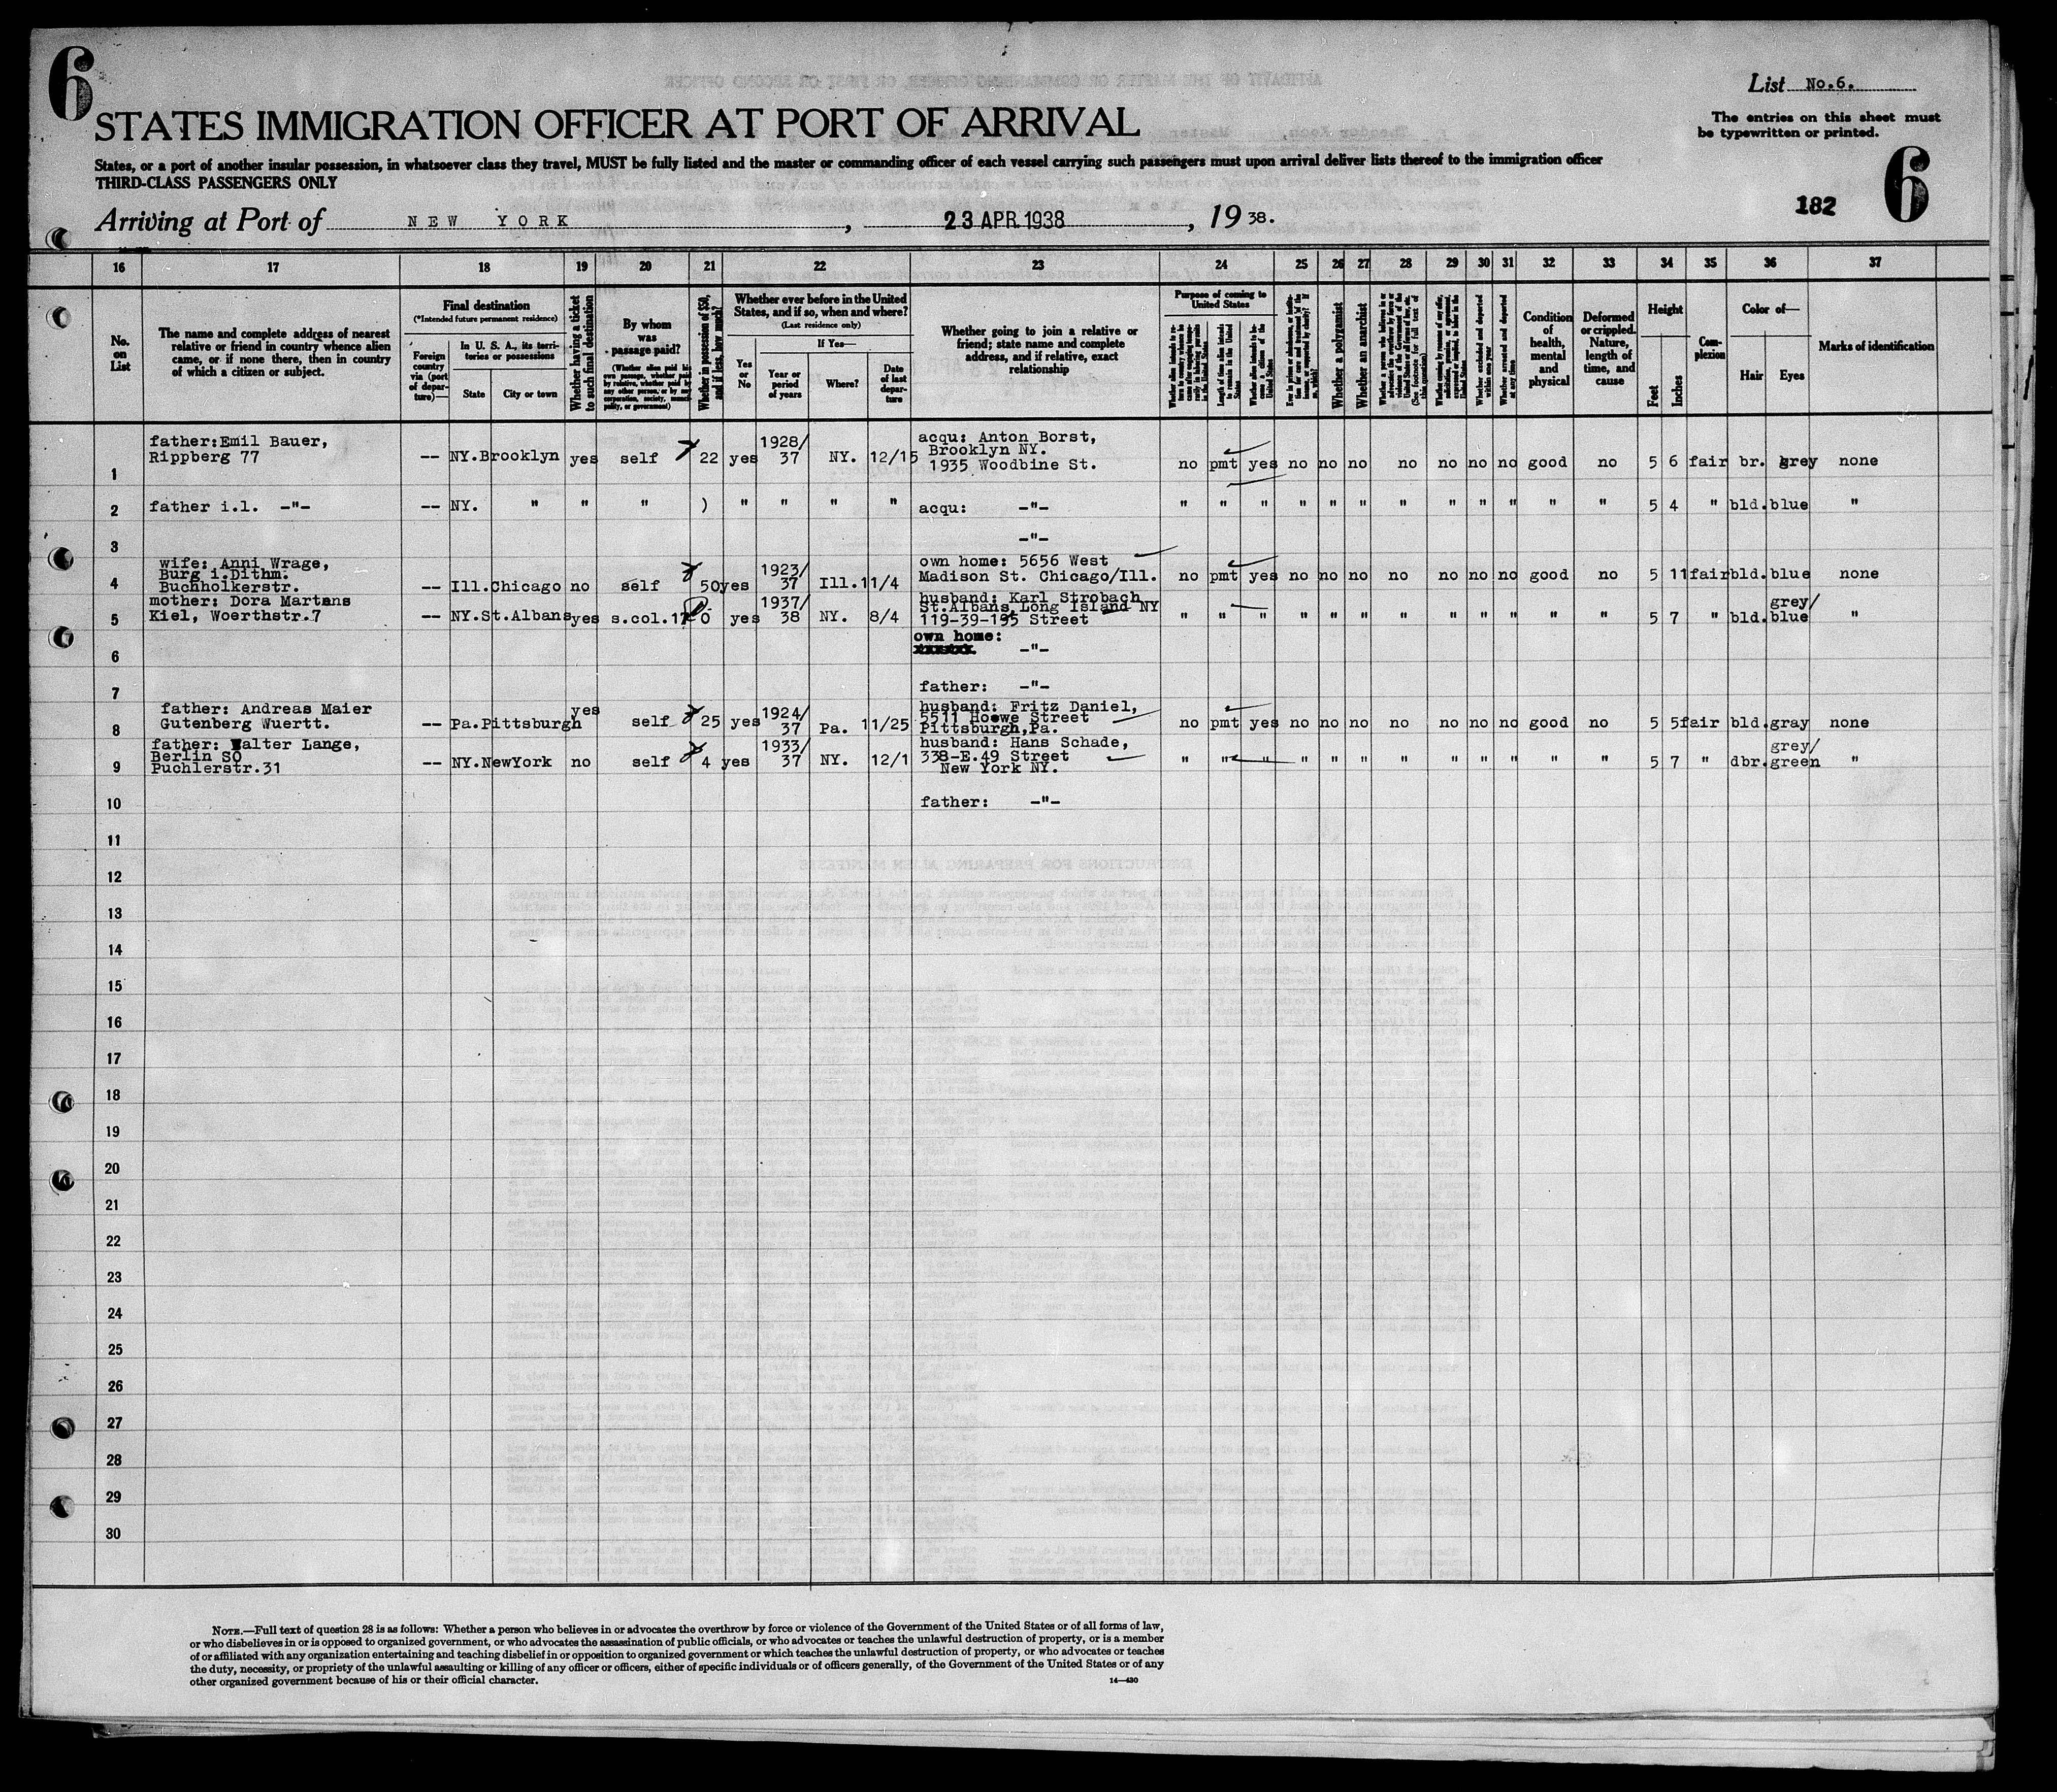 6
List No.6.
STATES IMMIGRATION OFFICER AT PORT OF ARRIVAL
The entries on this sheet must
be typewritten or printed.
States, or a port of another insular possession, in whatsoever class they travel, MUST be fully listed and the master or commanding officer of each vessel carrying such passengers must upon arrival deliver lists thereof to the immigration officer
THIRD-CLASS PASSENGERS ONLY
182 6
Arriving at Port of NEW YORK, 23 APR. 1938, 1938.
16 17 18 19 20 21 22 23 24 25 26 27 28 29 30 31 32 33 34 35 36 37
No. on List
The name and complete address of nearest
relative or friend in country whence alien
came, or if none there, then in country
of which a citizen or subject.
Final destination
(*Intended future permanent residence)
Foreign country via (port of departure)—
In U. S. A., its territories or possessions
State City or town
Whether having a ticket to such final destination
By whom was passage paid?
(Whether alien paid his own passage, whether paid by relative, whether paid by any other person, or by any corporation, society, municipality, or government)
Whether in possession of $50, and if less, how much?
Whether ever before in the United
States, and if so, when and where?
(Last residence only)
Yes or No
If Yes—
Year or period of years
Where?
Date of last departure
Whether going to join a relative or
friend; state name and complete
address, and if relative, exact
relationship
Purpose of coming to United States
Length of time alien intends to remain in the United States
Whether alien intends to become a citizen of the United States
Whether a polygamist
Whether an anarchist
Whether excluded and deported within one year
Whether arrested and deported at any time
Condition of health, mental and physical
Deformed or crippled. Nature, length of time, and cause
Height
Feet Inches
Complexion
Color of—
Hair Eyes
Marks of identification
father:Emil Bauer,
Rippberg 77
1 -- NY.Brooklyn yes self 22 yes 1928/37 NY. 12/15
acqu: Anton Borst,
Brooklyn NY.
1935 Woodbine St.
no pmt yes no no no no no no no good no 5 6 fair br. grey none
2 father i.l. -"- -- NY. " " " ) " " " " acqu: -"- " " " " " " " " " " " " 5 4 " bld. blue "
3 -"-
wife: Anni Wrage,
Burg i.Dithm.
Buchholkerstr.
4 -- Ill.Chicago no self 50 yes 1923/37 Ill. 11/4
own home: 5656 West
Madison St. Chicago/Ill.
no pmt yes no no no no no no no good no 5 11 fair bld. blue none
mother: Dora Martens
Kiel, Woerthstr.7
5 -- NY.St.Albans yes s.col.17 0 yes 1937/38 NY. 8/4
husband: Karl Strobach
St.Albans, Long Island NY
119-39-195 Street
" " " " " " " " " " " " 5 7 " bld. grey/blue "
own home:
6 -"-
7 father: -"-
father: Andreas Maier
Gutenberg Wuertt.
8 -- Pa.Pittsburgh yes self 25 yes 1924/37 Pa. 11/25
husband: Fritz Daniel,
5511 Howe Street
Pittsburgh,Pa.
no pmt yes no no no no no no no good no 5 5 fair bld. gray none
father: Walter Lange,
Berlin SO
Puchlerstr.31
9 -- NY.NewYork no self 4 yes 1933/37 NY. 12/1
husband: Hans Schade,
338-E.49 Street
New York NY.
" " " " " " " " " " " " 5 7 " dbr. grey/green "
10 father: -"-
11
12
13
14
15
16
17
18
19
20
21
22
23
24
25
26
27
28
29
30
NOTE.—Full text of question 28 is as follows: Whether a person who believes in or advocates the overthrow by force or violence of the Government of the United States or of all forms of law,
or who disbelieves in or is opposed to organized government, or who advocates the assassination of public officials, or who advocates or teaches the unlawful destruction of property, or is a member
of or affiliated with any organization entertaining and teaching disbelief in or opposition to organized government or which teaches the unlawful destruction of property, or who advocates or teaches
the duty, necessity, or propriety of the unlawful assaulting or killing of any officer or officers, either of specific individuals or of officers generally, of the Government of the United States or of any
other organized government because of his or their official character.
14—430